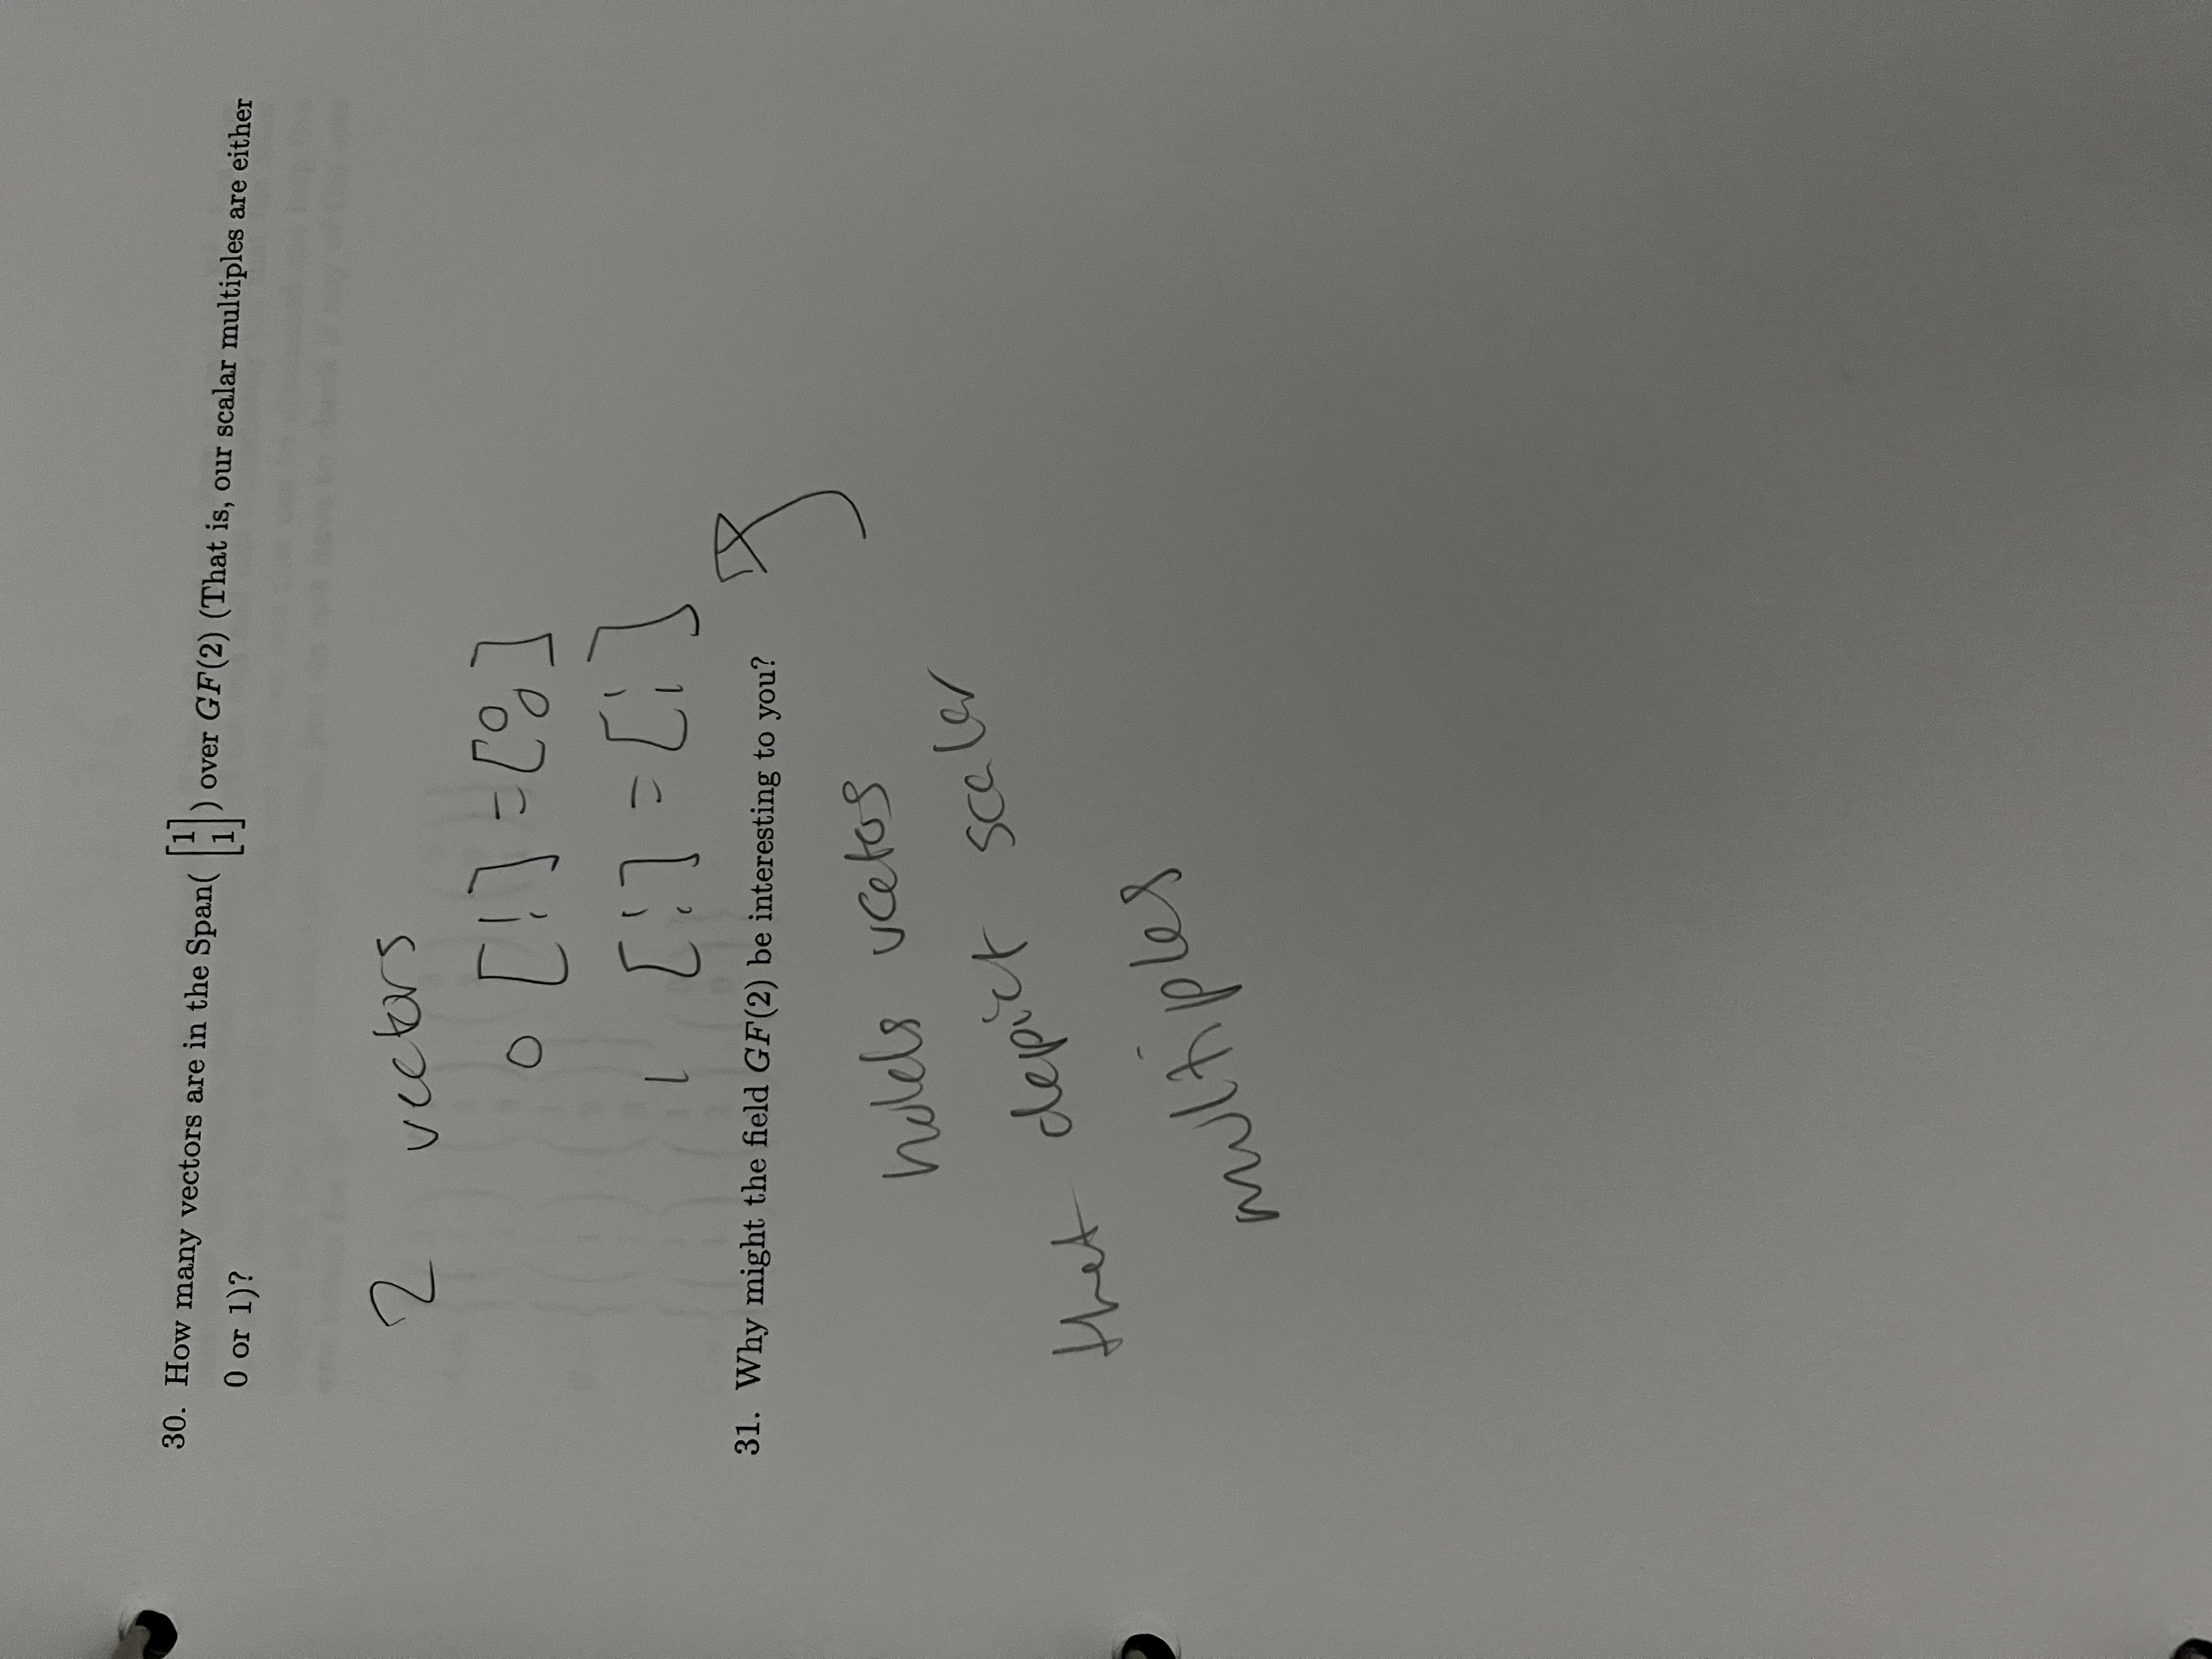 30. How many vectors are in the Span( [1 1] ) over GF(2) (That is, our scalar multiples are either
0 or 1)?
2 vectors
0 [1 1] = [0 0]
1 [1 1] = [1 1]
31. Why might the field GF(2) be interesting to you?
holds vcetos
that depict scalar
multiples